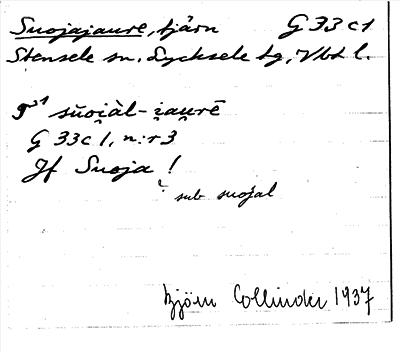 Suojajaure, tjärn G 33 c 1
Stensele sn. Lycksele lg, Vbt l.
sŭoi̯àl-i̯au̯rē
G 33 c 1, n:r 3
Jf Suoja !
sub suojal
Björn Collinder 1937